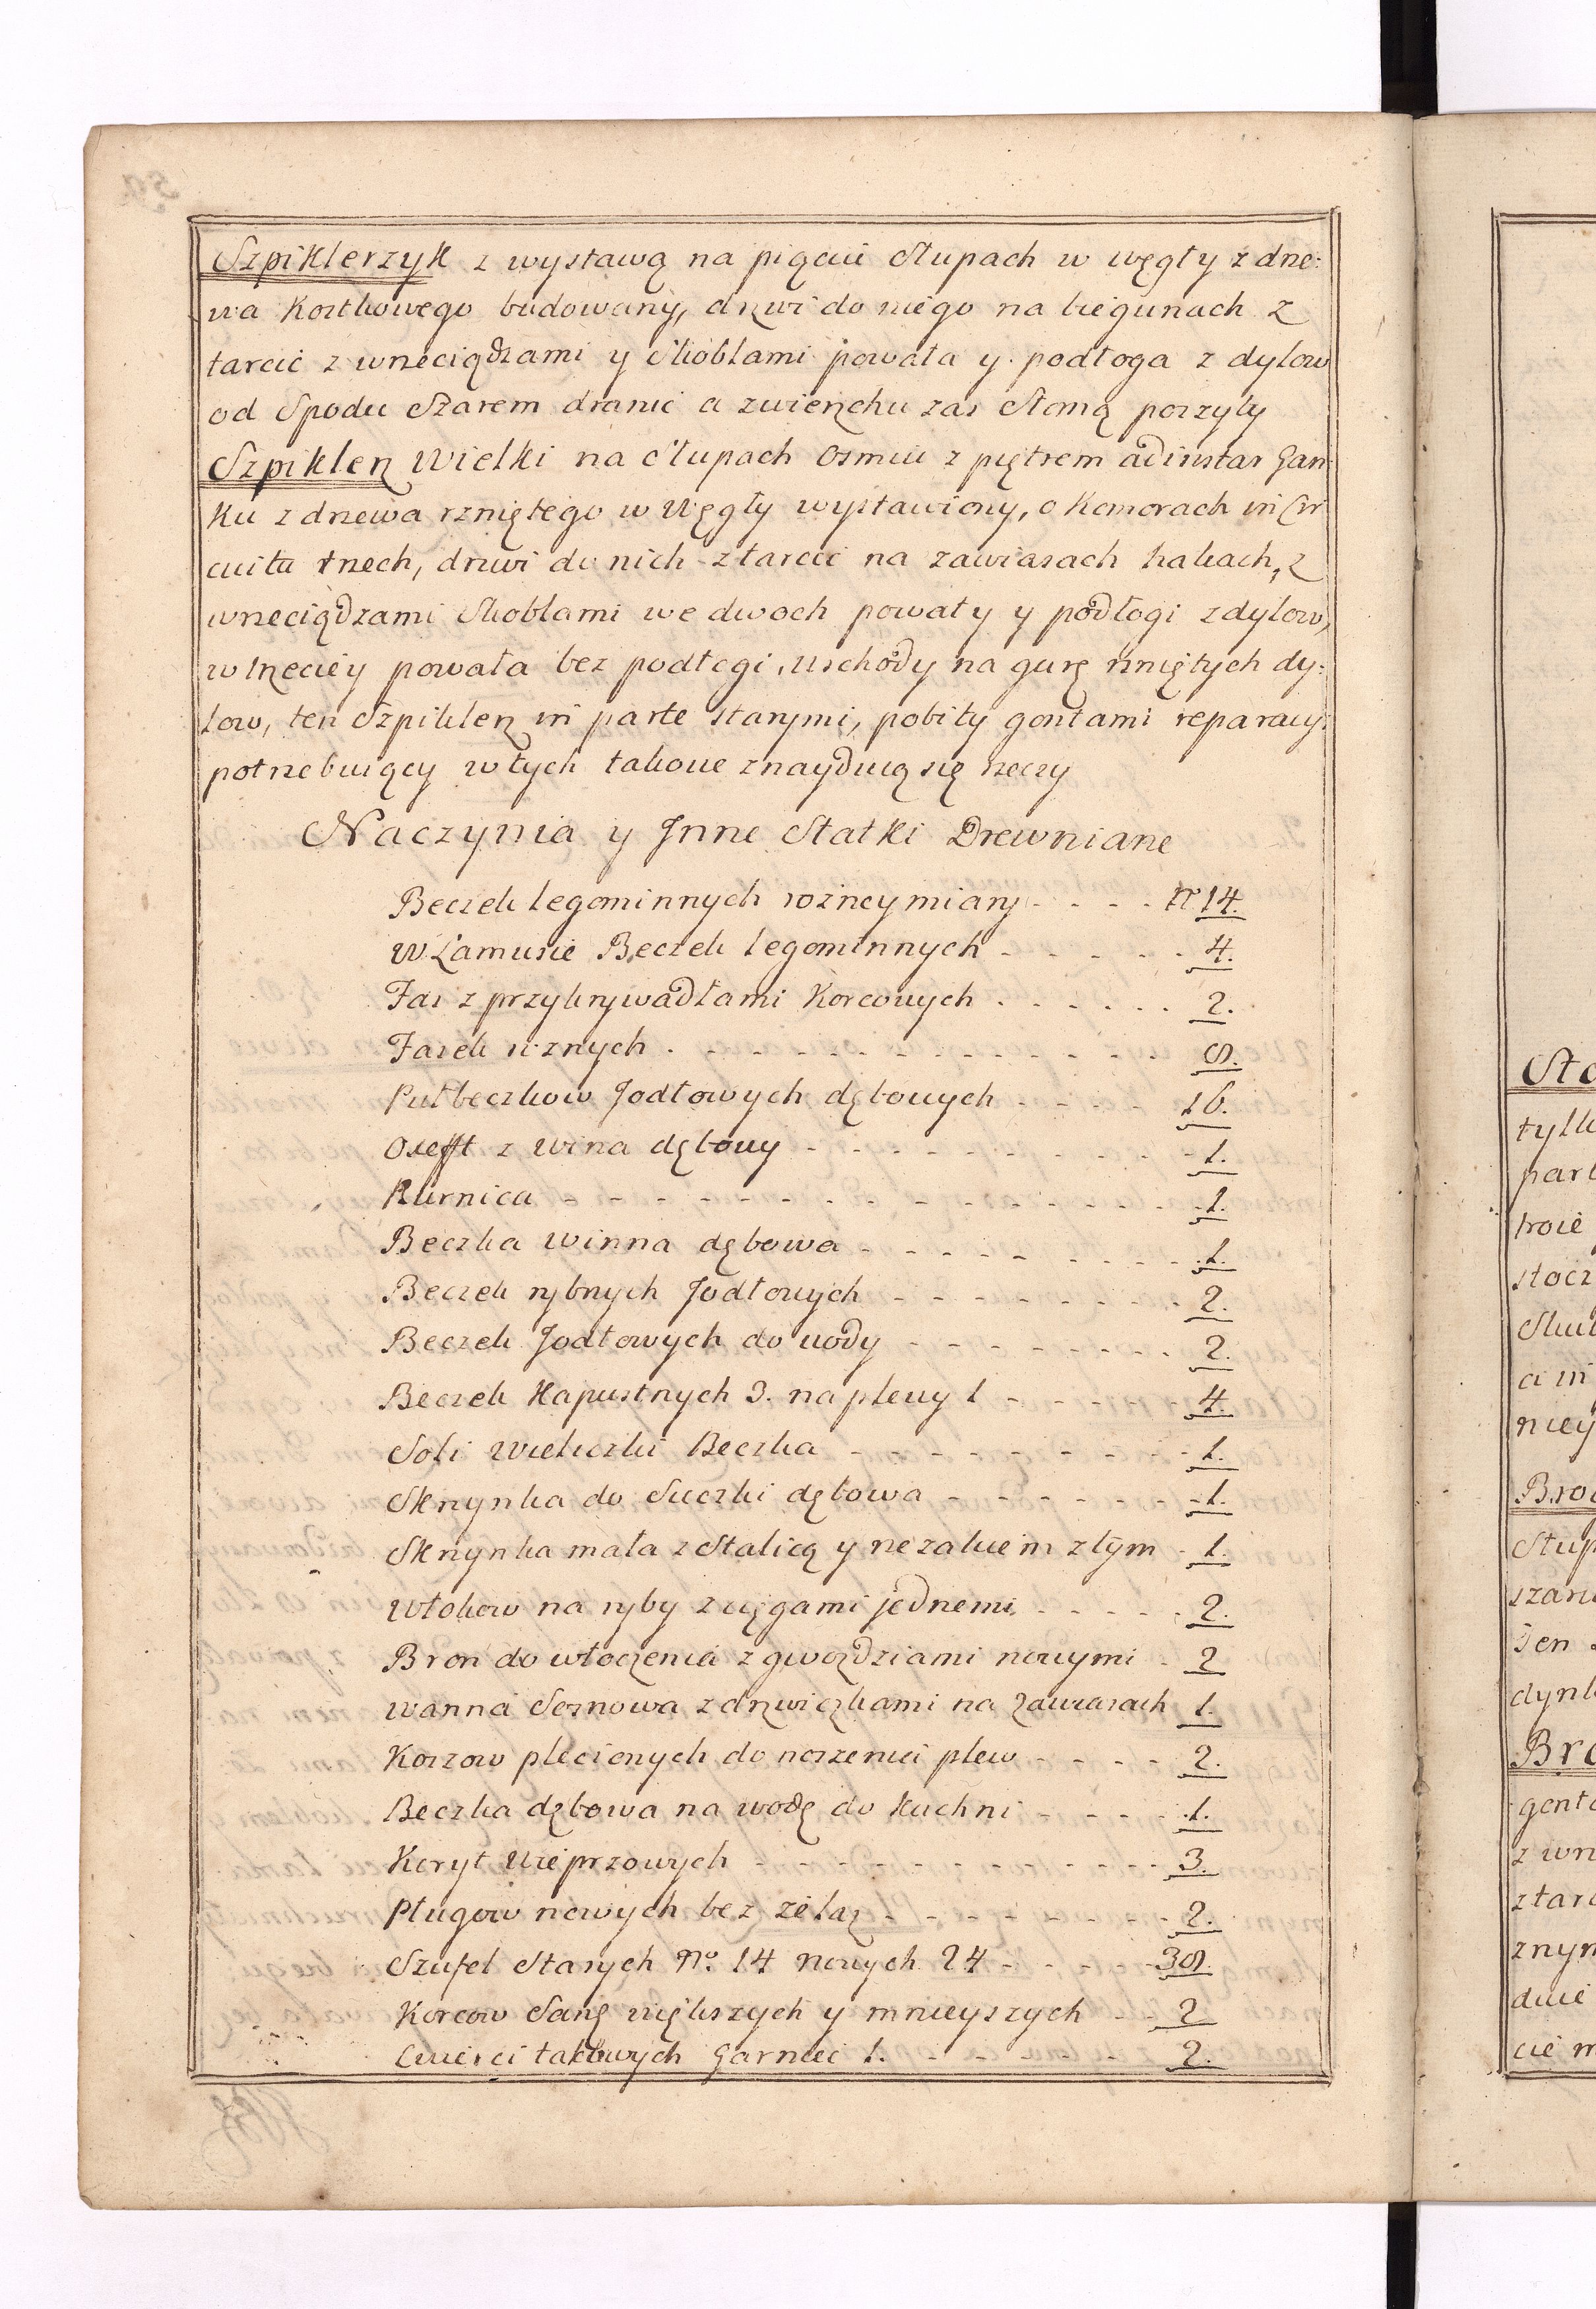 Szpiklerzyk z wystawą na pięciu Słupach w węgły z drze:
wa Kostkowego budowany, drzwi do niego na biegunach z
tarcic z wrzeciądzami y Skoblami powała y podłoga z dylow
od Spodu Starem dranic a zwierzchu zas Słomą poszyty
Szpiklerz Wielki na Słupach osmiu z piętrem ad instar Gan
Ku z drzewa rzniętego w Węgły wystawiony, o Komorach in Cir
cuitu trzech, drzwi do nich z tarcic na zawiasach hakach, z
wrzeciądzami Skoblami we dwoch powały y podłogi z dylow,
w trzeciey powała bez podłogi, wschody na gurę rzniętych dy:
low, ten Szpiklerz in parte starymi, pobity gontami reparacyi
potrzebuiący w tych takowe znayduią się rzeczy
Naczynia y Jnne Statki Drewniane
Beczek legominnych rożney miary - - - - Nr 14.
W Lamusie Beczek legominnych - - - - - 4.
Fas z przykrywadłami Korcowych - - - - - 2.
Fasek rożnych - - - - - - - - - - 8.
Pułbeczkow Jodłowych dębowych - - - - 16.
Oxefft z wina dębowy - - - - - - - - 1.
Kurnica - - - - - - - - - - - - 1.
Beczka winna dębowa - - - - - - - 1.
Beczek rybnych Jodłowych - - - - - - - 2.
Beczek Jodłowych do wody - - - - - - - 2.
Beczek Kapustnych 3. na plewy 1 - - - - 4.
Soli Wieliczki Beczka - - - - - - - - 1.
Skrzynka do Sieczki dębowa - - - - - - 1.
Skrzynka mała z Stalicą y rzezakiem złym - 1.
Włokow na ryby z cięgami jednemi - - - - 2.
Bron do włoczenia z gwozdziami nowymi - 2
Wanna Sosnowa z drzwiczkami na zawiasach 1.
Koszow plecionych do noszenia plew - - - - 2.
Beczka dębowa na wodę do Kuchni - - - - 1.
Koryt Wieprzowych - - - - - - - - - 3.
Pługow nowych bez żelaz - - - - - - - 2.
Szufel Starych No. 14 nowych 24 - - - - 38.
Korcow Sanę większych y mnieyszych - - 2
Cwierci takowych Garniec 1. - - - - - - 2.